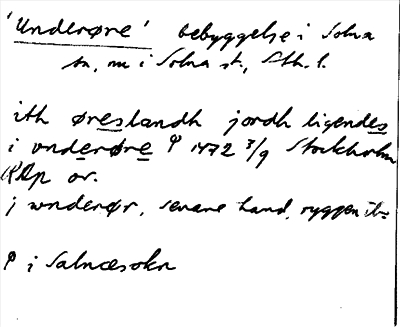 'Underøre' bebyggelse i Solna
sn, nu i Solna st, Sth. l.
ith øreslandh jordh ligendes
i vnderøre P 1472 3/9 Stockholm
RAp or.
j wnderør, senare hand, ryggen ib
P i Salnæsokn